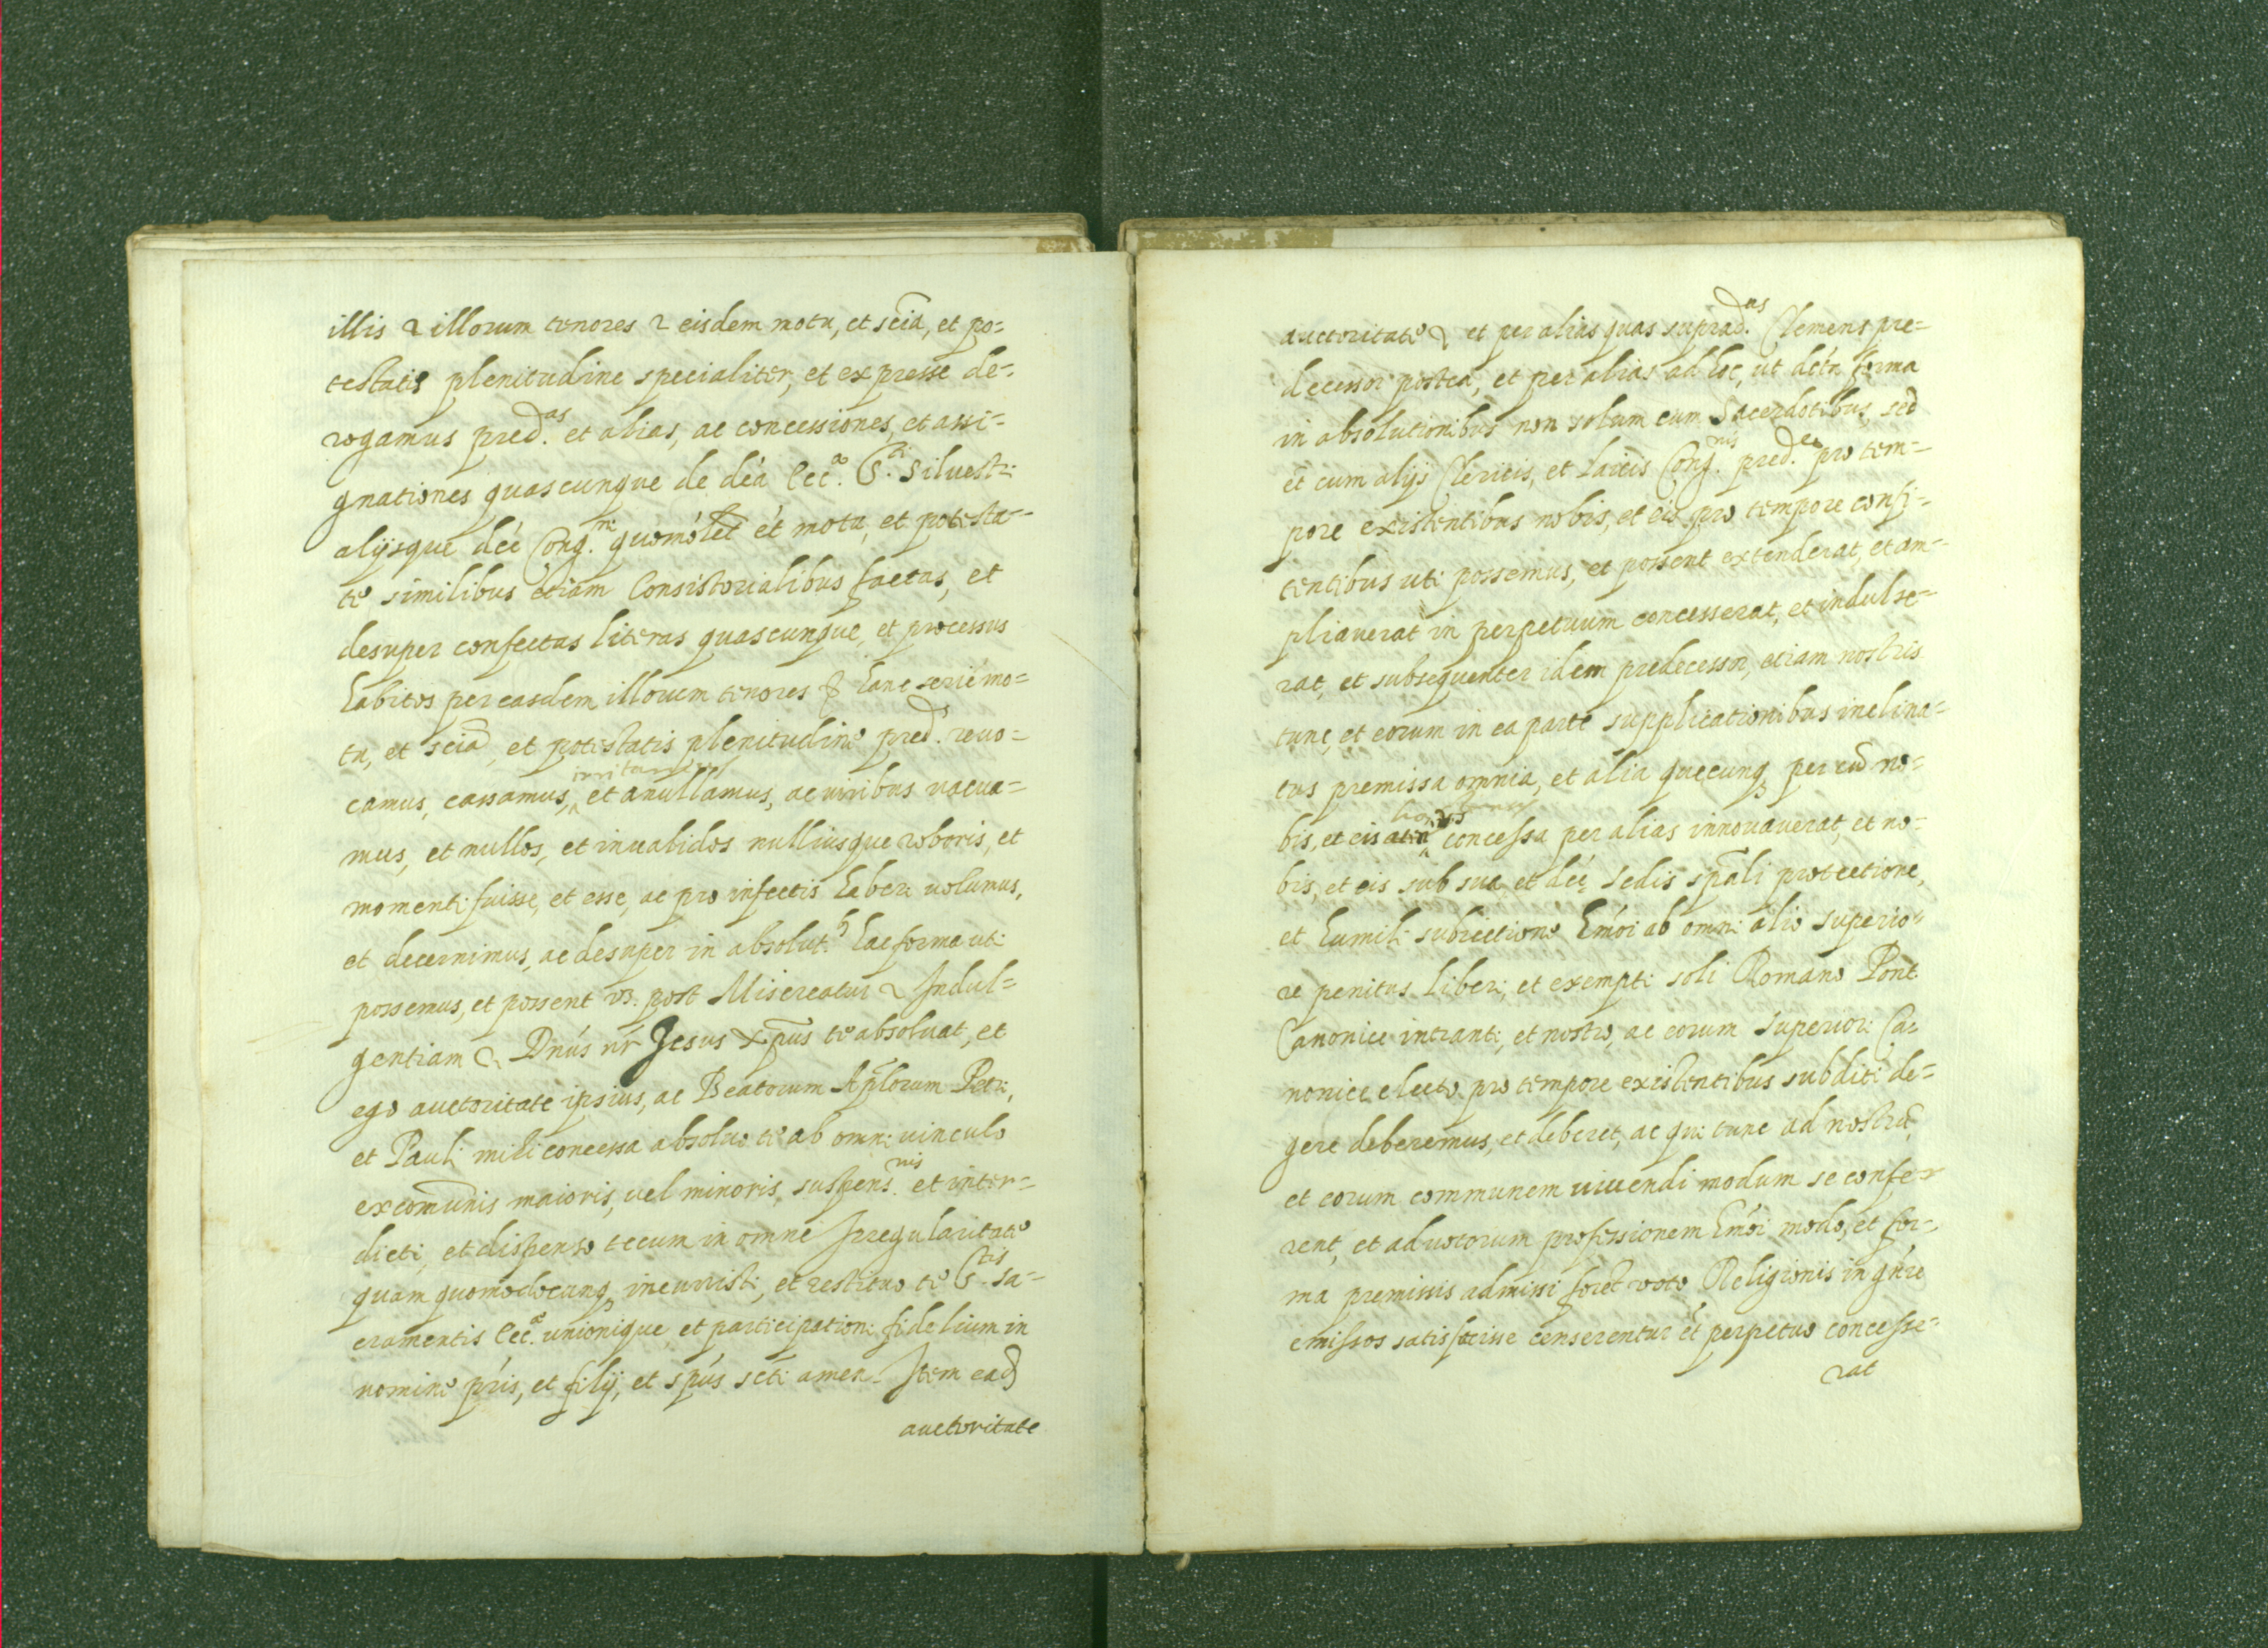 illis & illorum tenores & eisdem motu, et scĩa, et po=
testatis plenitudine specialiter, et expresse de=
rogamus pred.as et alias, ac concessiones, et assi=
gnationes quascunque de dc̃a Ecc.a S.ti Siluestri
alijsque dc̃e Cong.ni quomolet et motu, et potesta=
te similibus etiam Consistorialibus factas, et
desuper confectas literas quascunque, et processus
habitos per easdem illorum tenores & hanc serie mo=
tu, et scia, et potestatis plenitudine pred. reuo=
camus, cassamus, irritamus et anullamus, ac uiribus uacua=
mus, et nullos, et inualidos nulliusque roboris, et
momenti fuisse, et esse, ac pro infectis haberi uolumus,
et decernimus, ac desuper in absolut. hac forma uti
possemus, et possent vz. post Misereatur & Indul=
gentiam & Dñus nr̃ Jesus Xp̃us te absoluat, et
ego auctoritate ipsius, ac Beatorum Ap̃lorum Petri,
et Pauli mihi concessa absoluo te ab omni uinculo
excomũnis maioris, uel minoris, suspens.nis et inter=
dicti, et dispenso tecum in omne Irregularitate
quam quomodocunq; incurristi, et restituo te S.tis sa=
cramentis Ecc.e unionique et participationi fidelium in
nomine pr̃is, et filij, et sp̃us sc̃ti amen. Item ead
auctoritate
auctoritate & et per alias quas suprad.us Clemens pre=
decessor postea, et per alias ad hoc, ut dcta forma
in absolutionibus non solum cum Sacerdotibus, sed
et cum alijs Clericis, et laicis Cong.nis pred.e pro tem=
pore existentibus nobis, et eis pro tempore confi=
tentibus uti possemus, et possent extenderat, et am=
pliauerat in perpetuum concesserat, et indulse=
rat, et subsequenter idem predecessor, etiam nostris
tunc, et eorum in ea parte supplicationibus inclina=
tus premissa omnia, et alia quecunq; per eũ no=
bis, et eis concessa per alias innouauerat, et no=
bis, et eis sub sua, et dc̃e sedis sp̃ali protectione,
et humili subiectione hmõi ab omni alio superio=
re penitus liberi, et exempti soli Romano Pont.
Canonice intranti, et nostro, ac eorum superiori Ca=
nonice electo pro tempore existentibus subditi de=
gere deberemus, et deberet, ac qui tunc ad nostrũ,
et eorum communem uiuendi modum se confer
rent, et ad uotorum professionem hmõi modo, et for=
ma premissis admissi foret uoto Religionis in gñre
emissos satisfecisse censerentur et perpetuo concesse=
rat